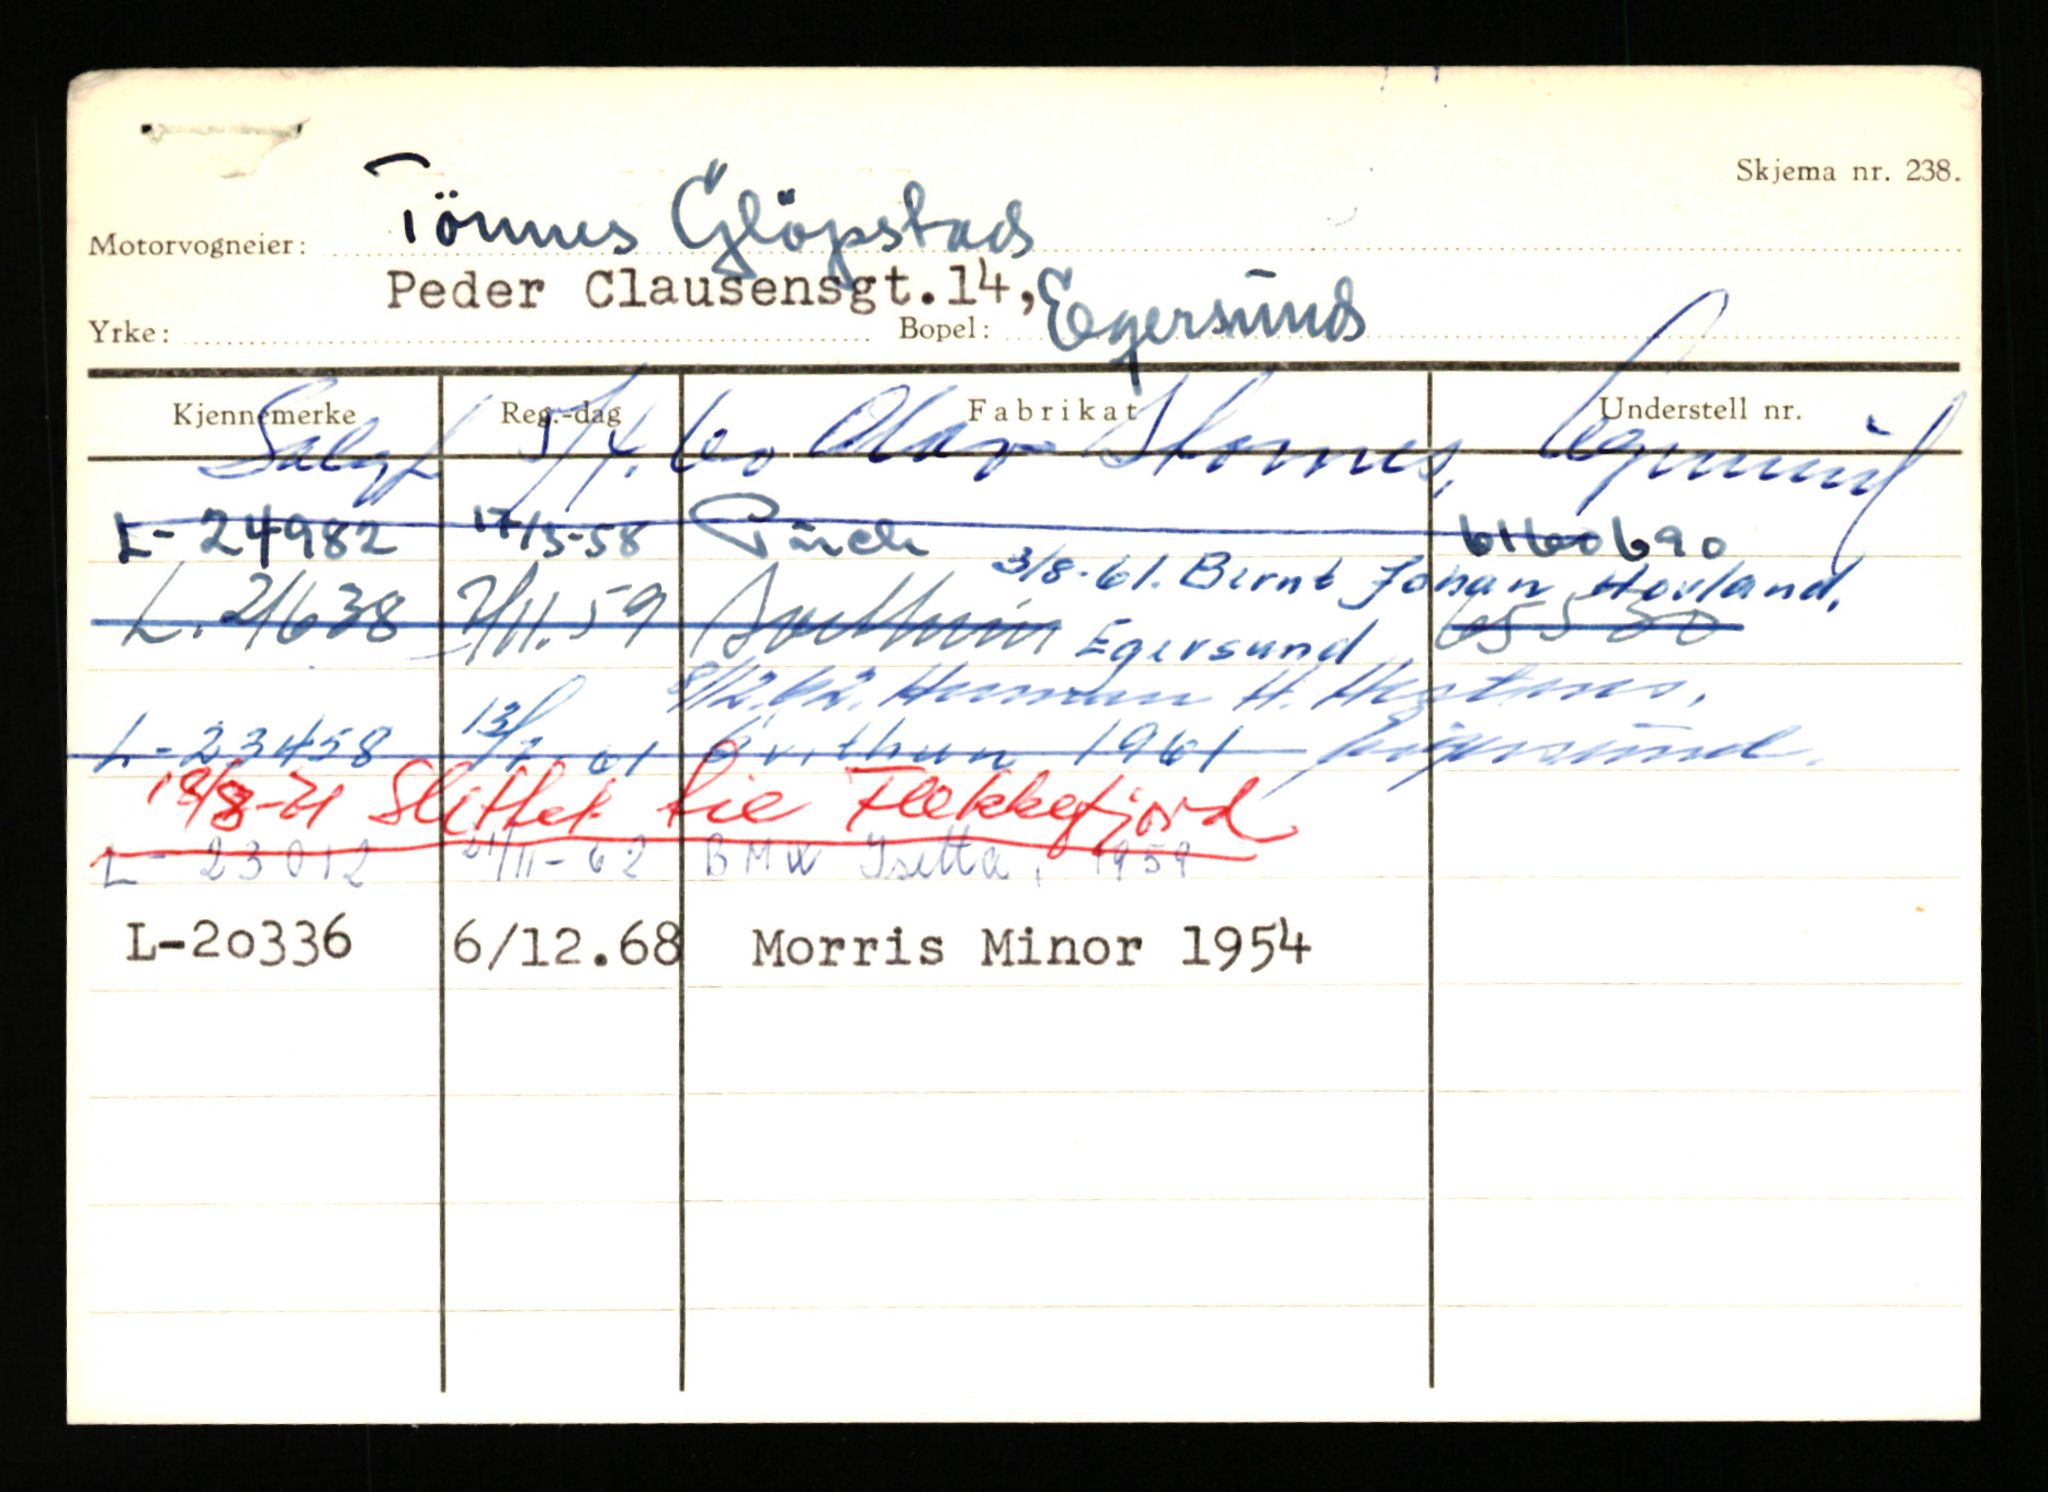 Skjema nr. 238.
Motorvogneier: Tönnes Glöpstad
Peder Clausensgt.14, Egersund
Yrke: Bopel:
Kjennemerke Reg.-dag Fabrikat Understell nr.
Solgt 5/4.60 Olav Egersund
L-24982 17/3-58 Puch 6160690
3/8-61. Bernt Johan Hovland,
L. 21638 2/11.59 65530
Egersund
8/12.62. Herman H.
L-23458 13/7-61 1961 Egersund.
18/8-71 Slettet til Flekkefjord
L-23012 21/11-62 BMW Isetta, 1959
L-20336 6/12.68 Morris Minor 1954